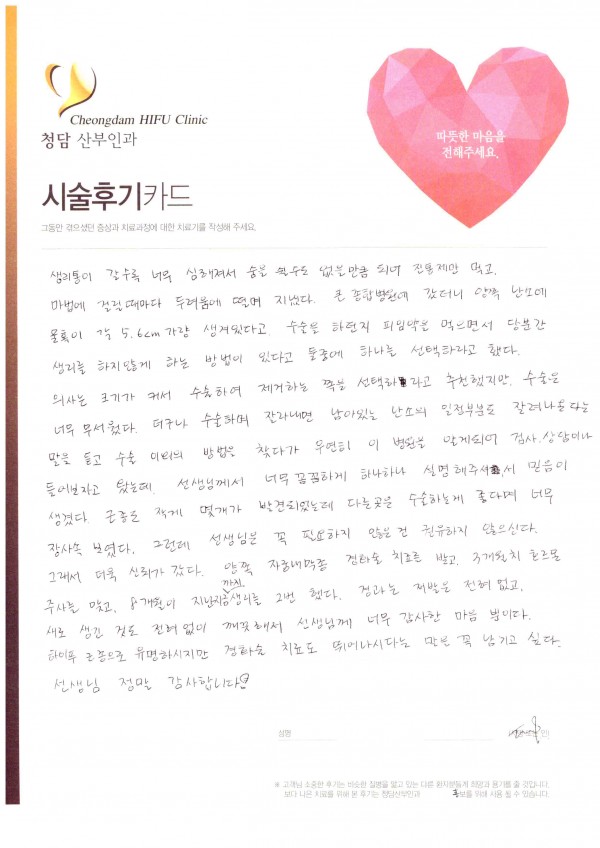 Cheongdam HIFU Clinic
청담 산부인과
따뜻한 마음을
전해주세요.
시술후기카드
그동안 겪으셨던 증상과 치료과정에 대한 치료기를 작성해 주세요.
생리통이 갈수록 너무 심해져서 숨을 쉴수도 없을만큼 되어 진통제만 먹고,
마법에 걸릴때마다 두려움에 떨며 지냈다. 큰 종합병원에 갔더니 양쪽 난소에
물혹이 각 5.6cm가량 생겨있다고 수술을 하던지 피임약을 먹으면서 당분간
생리를 하지않게 하는 방법이 있다고 둘중에 하나를 선택하라고 했다.
의사는 크기가 커서 수술하여 제거하는 쪽을 선택하라고 추천했지만, 수술은
너무 무서웠다. 더구나 수술하며 잘라내면 남아있는 난소의 일정부분도 잘려나온다는
말을 듣고 수술 이외의 방법을 찾다가 우연히 이 병원을 알게되어 검사,상담이나
들어보자고 왔는데. 선생님께서 너무 꼼꼼하게 하나하나 설명해주셔서 믿음이
생겼다. 근종도 작게 몇개가 발견되었는데 다른곳은 수술하는게 좋다며 너무
장사속 보였다. 그런데 선생님은 꼭 필요하지 않은건 권유하지 않으신다.
그래서 더욱 신뢰가 갔다. 양쪽 자궁내막종 경화술 치료를 받고, 3개월치 호르몬
주사를 맞고, 8개월이 지난지금까지 생리를 2번 했다. 결과는 재발은 전혀 없고,
새로 생긴 것도 전혀 없이 깨끗해서 선생님께 너무 감사한 마음 뿐이다.
하이푸 근종으로 유명하시지만 경화술 치료도 뛰어나시다는 말은 꼭 남기고 싶다.
선생님 정말 감사합니다
성명
인
※ 고객님 소중한 후기는 비슷한 질병을 앓고 있는 다른 환자분들게 희망과 용기를 줄 것입니다.
보다 나은 치료를 위해 본 후기는 청담산부인과 홍보를 위해 사용 될 수 있습니다.